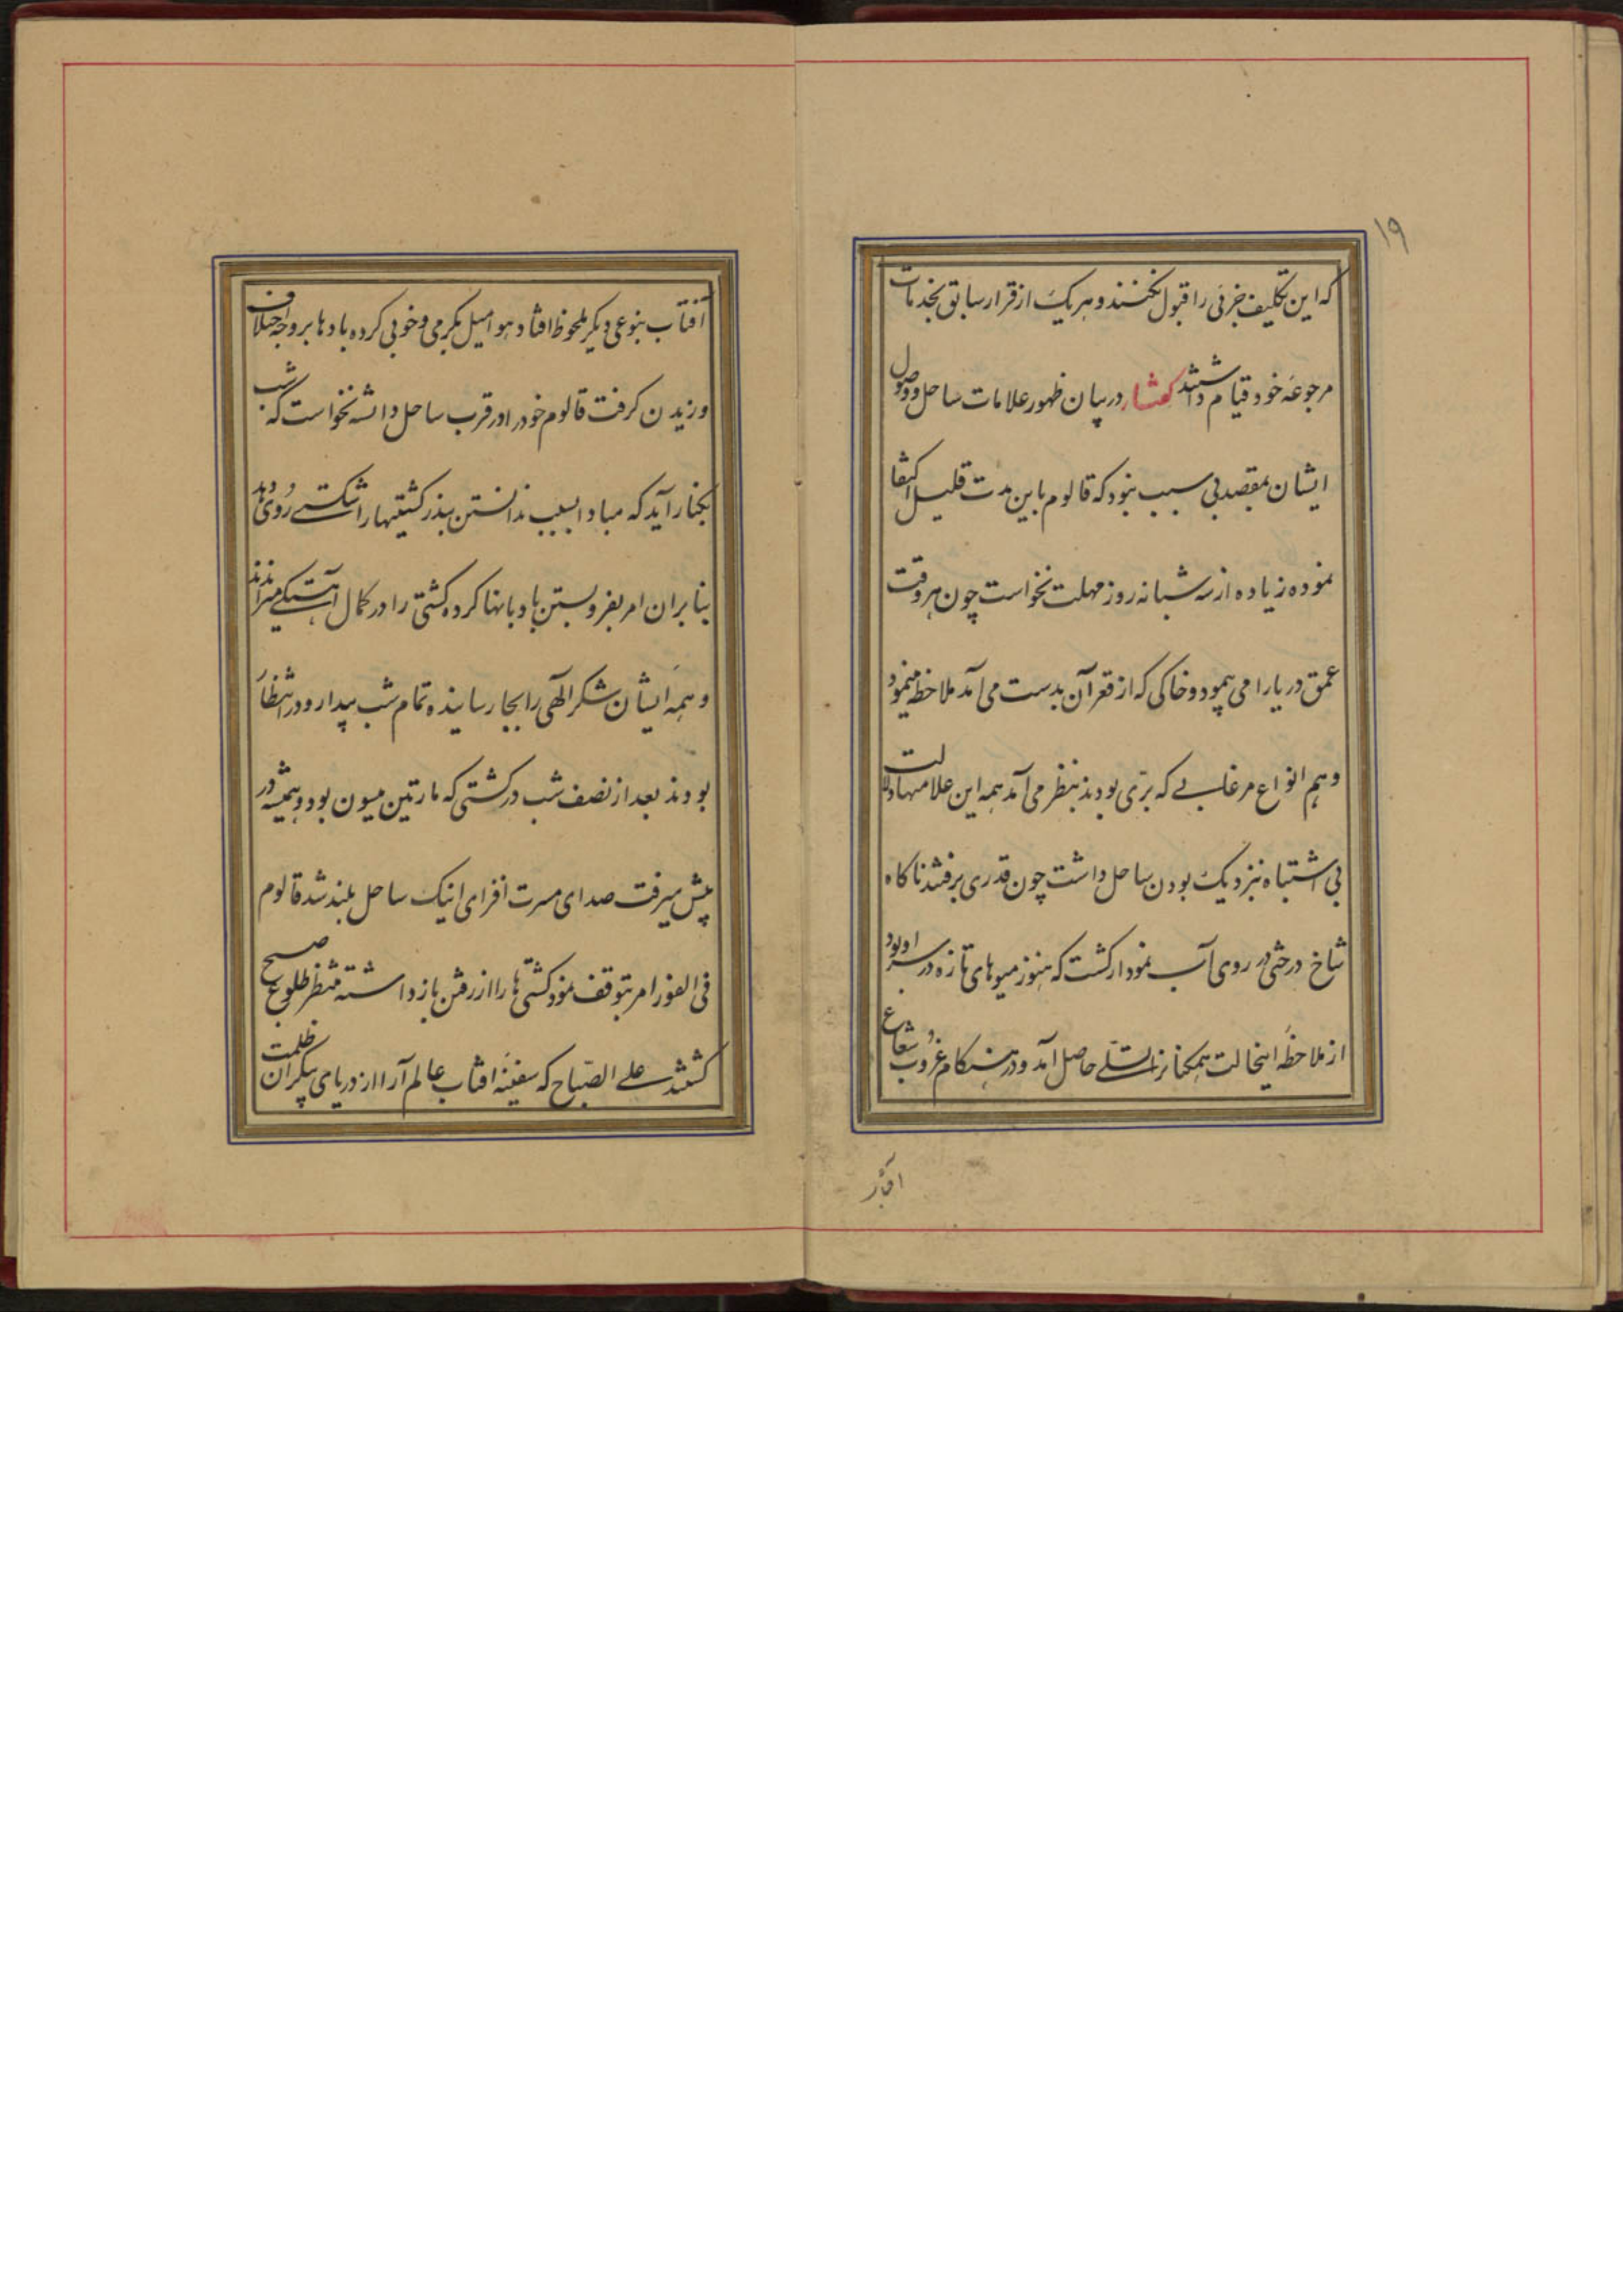 ۱۹
که این تکلیف جزئی را قبول نکنند و هریک از قرار سابق بخدمات
مرجوعه خود قیام داشتند گفتار در بیان ظهور علامات ساحل و وصول
ایشان بمقصد بی سبب نبود که قالوم باین مدت قلیل اکتفا
نموده زیاده از سه شبانه روز مهلت نخواست چون هر وقت
عمق دریا را می پیمود و خاکی که از قعر آن بدست می آمد ملاحظه مینمود
و هم انواع مرغابی که بری بودند بنظر می آمد همه این علامتها دلالت
بی اشتباه بنزدیک بودن ساحل داشت چون قدری برفتند ناکاه
شاخ درختی در روی آب نمودار کشت که هنوز میوهای تازه در سر او بود
از ملاحظه اینحالت همکنانرا تسلی حاصل آمد و در هنکام غروب شعاع
آفتاب
آفتاب بنوعی دیکر ملحوظ افتاد هوا میل بکرمی و خوبی کرده بادها بر وجه اختلاف
وزیدن کرفت قالوم خود را در قرب ساحل دانسته نخواست که شب
بکنار آید که مبادا بسبب ندانستن بندر کشتیها را شکستی روی دهد
بنا بران امر بفرو بستن بادبانها کرده کشتی را در کمال آهستکی میراندند
و همه ایشان شکر الهی را بجا رسانیده تمام شب بیدار و در انتظار
بودند بعد از نصف شب در کشتی که مارتین میسون بود و همیشه در
پیش میرفت صدای مسرت افزای اینک ساحل بلند شد قالوم
فی الفور امر بتوقف نمود کشتی ها را از رفتن باز داشته منتظر طلوع صبح
کشتند علی الصباح که سفینه افتاب عالم آرا از دریای بیکران ظلمت